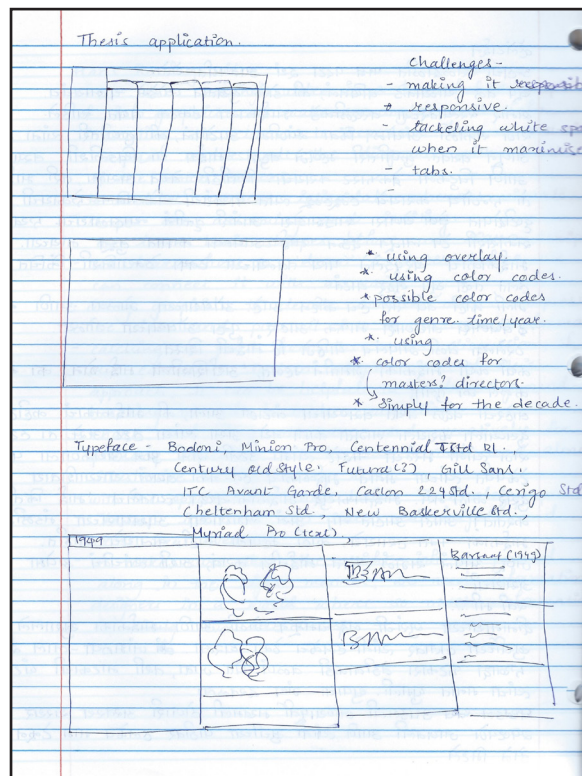 Thesis application.
Challenges -
- making it
* responsive.
- tackeling white
when it
- tabs.
-
* using overlay.
* using color codes.
* possible color codes
for genre. time/year.
* using
* color codes for
masters? directors.
* Simply for the decade.
Typeface - Bodoni, Minion Pro, Centennial
Century Old Style. Futura(?), Gill Sans.
ITC Avant Garde, Caslon 224 Std., Cerigo Std
Cheltenham Std, New Baskerville Std.,
Myriad Pro (text),
1949
(1949)